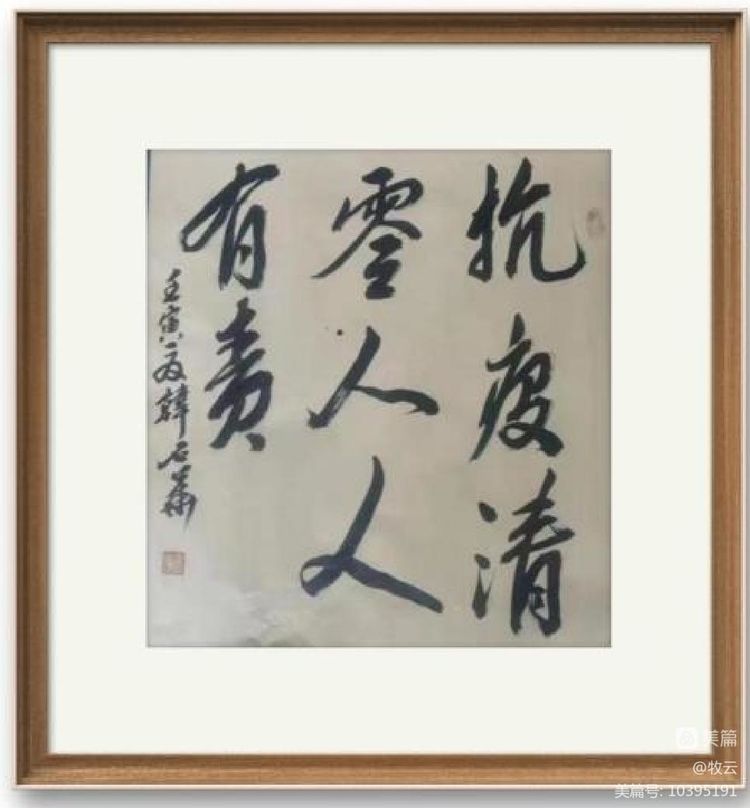 抗疫清
零人人
有责
壬寅夏韩石萧
美篇
@牧云
美篇号: 10395191